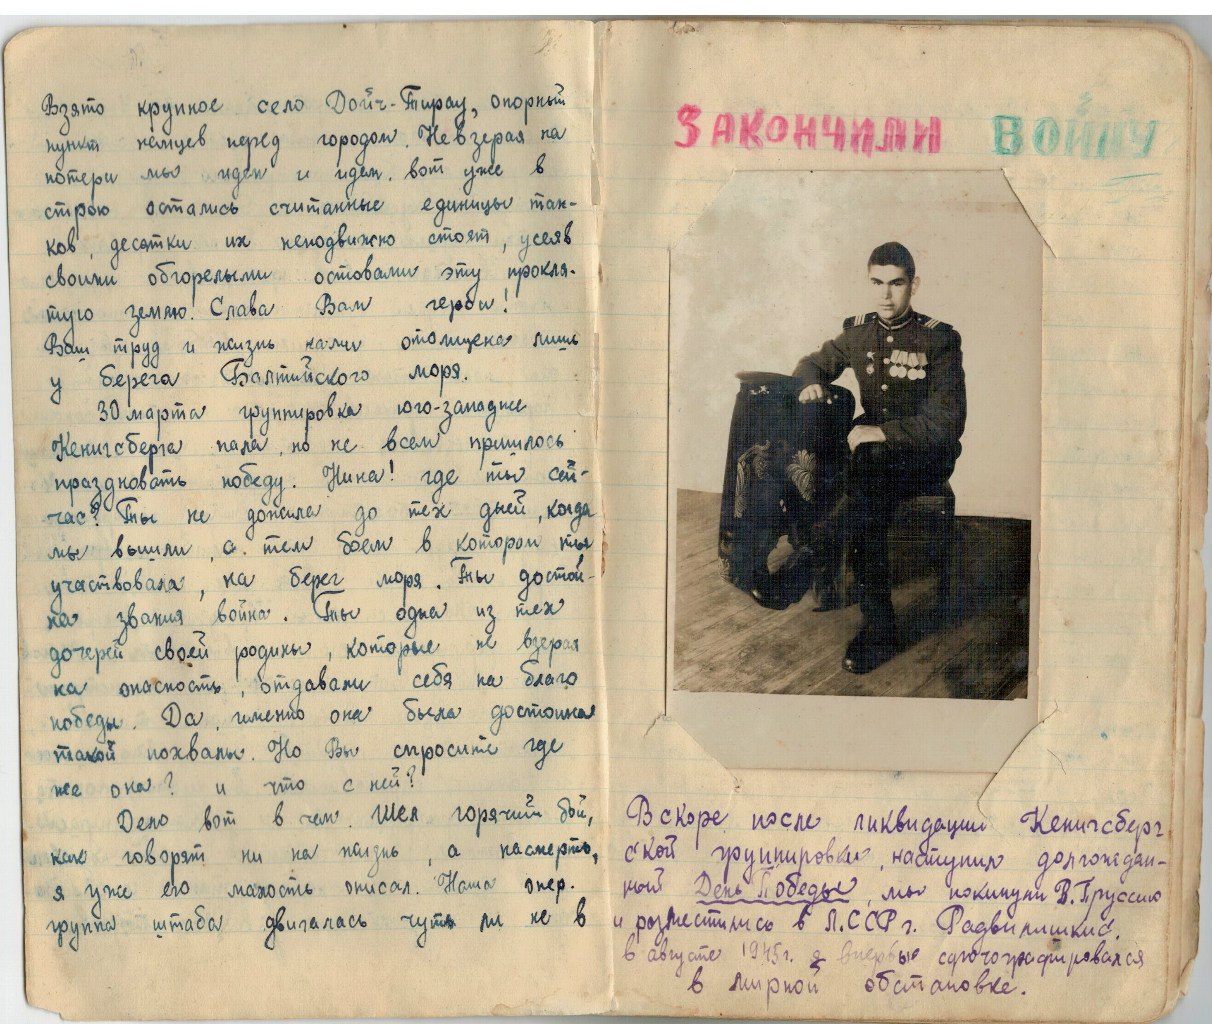 Взято крупное село Дойч-Тирау, опорный
пункт немцев перед городом. Невзерая на
потери мы идем и идем. вот уже в
строю остались считанные единицы тан-
ков, десятки их неподвижно стоят, усеяв
своими обгорелыми остовами эту прокля-
тую землю. Слава Вам герои!
Ваш труд и жизнь нами отомщена лишь
у берега Балтийского моря.
30 марта группировка юго-западнее
Кенигсберга пала, но не всем пришлось
праздновать победу. Нина! где ты сей-
час? Ты не дожила до тех дней, когда
мы вышли, с тем боем в котором ты
участвовала, на берег моря. Ты достой-
на звания война. Ты одна из тех
дочерей своей родины, которые не взерая
на опасность, отдавали себя на благо
победы. Да, именно она была достойна
такой похвалы. Но Вы спросите где
же она? и что с ней?
Дело вот в чем. Шел горячий бой,
как говорят ни на жизнь, а насмерть,
я уже его малость описал. Наша опер.
группа штаба двигалась чуть ли не в
ЗАКОНЧИЛИ ВОЙНУ
Вскоре после ликвидации Кенигсберг
ской группировки наступил долгождан-
ный День Победы, мы покинули В. Пруссию
и разместились в Л.ССР г. Радвилишкис.
в августе 1945г. я впервые сфотографировался
в мирной обстановке.